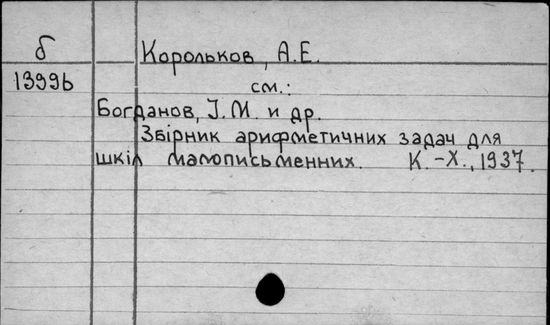 б
13996
Корольков, А.Е.
см.:
Богданов, І.М. и др.
Збірник арифметичних задач для
шкіл малописьменних. К.-Х., 1937.